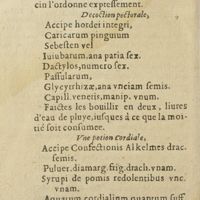 cin l'ordonne expressement.
Decoction pectorale,
Accipe hordei integri,
Caricarum pinguium
Sebesten vel
Iuiubarum, ana paria sex.
Dactylos, numero sex.
Passularum,
Glycyrrhizæ, ana vnciam semis.
Capill. veneris, manip. vnum.
Faictes les bouillir en deux, liures
d'eau de pluye, iusques à ce que la moi-
tié soit consumee.
Vne potion cordiale,
Accipe Confectionis Alkelmes drac.
semis.
Puluer. diamarg. frig. drach. vnam.
Syrupi de pomis redolentibus vnc.
vnam.
Aquarum cordialium quantum suff